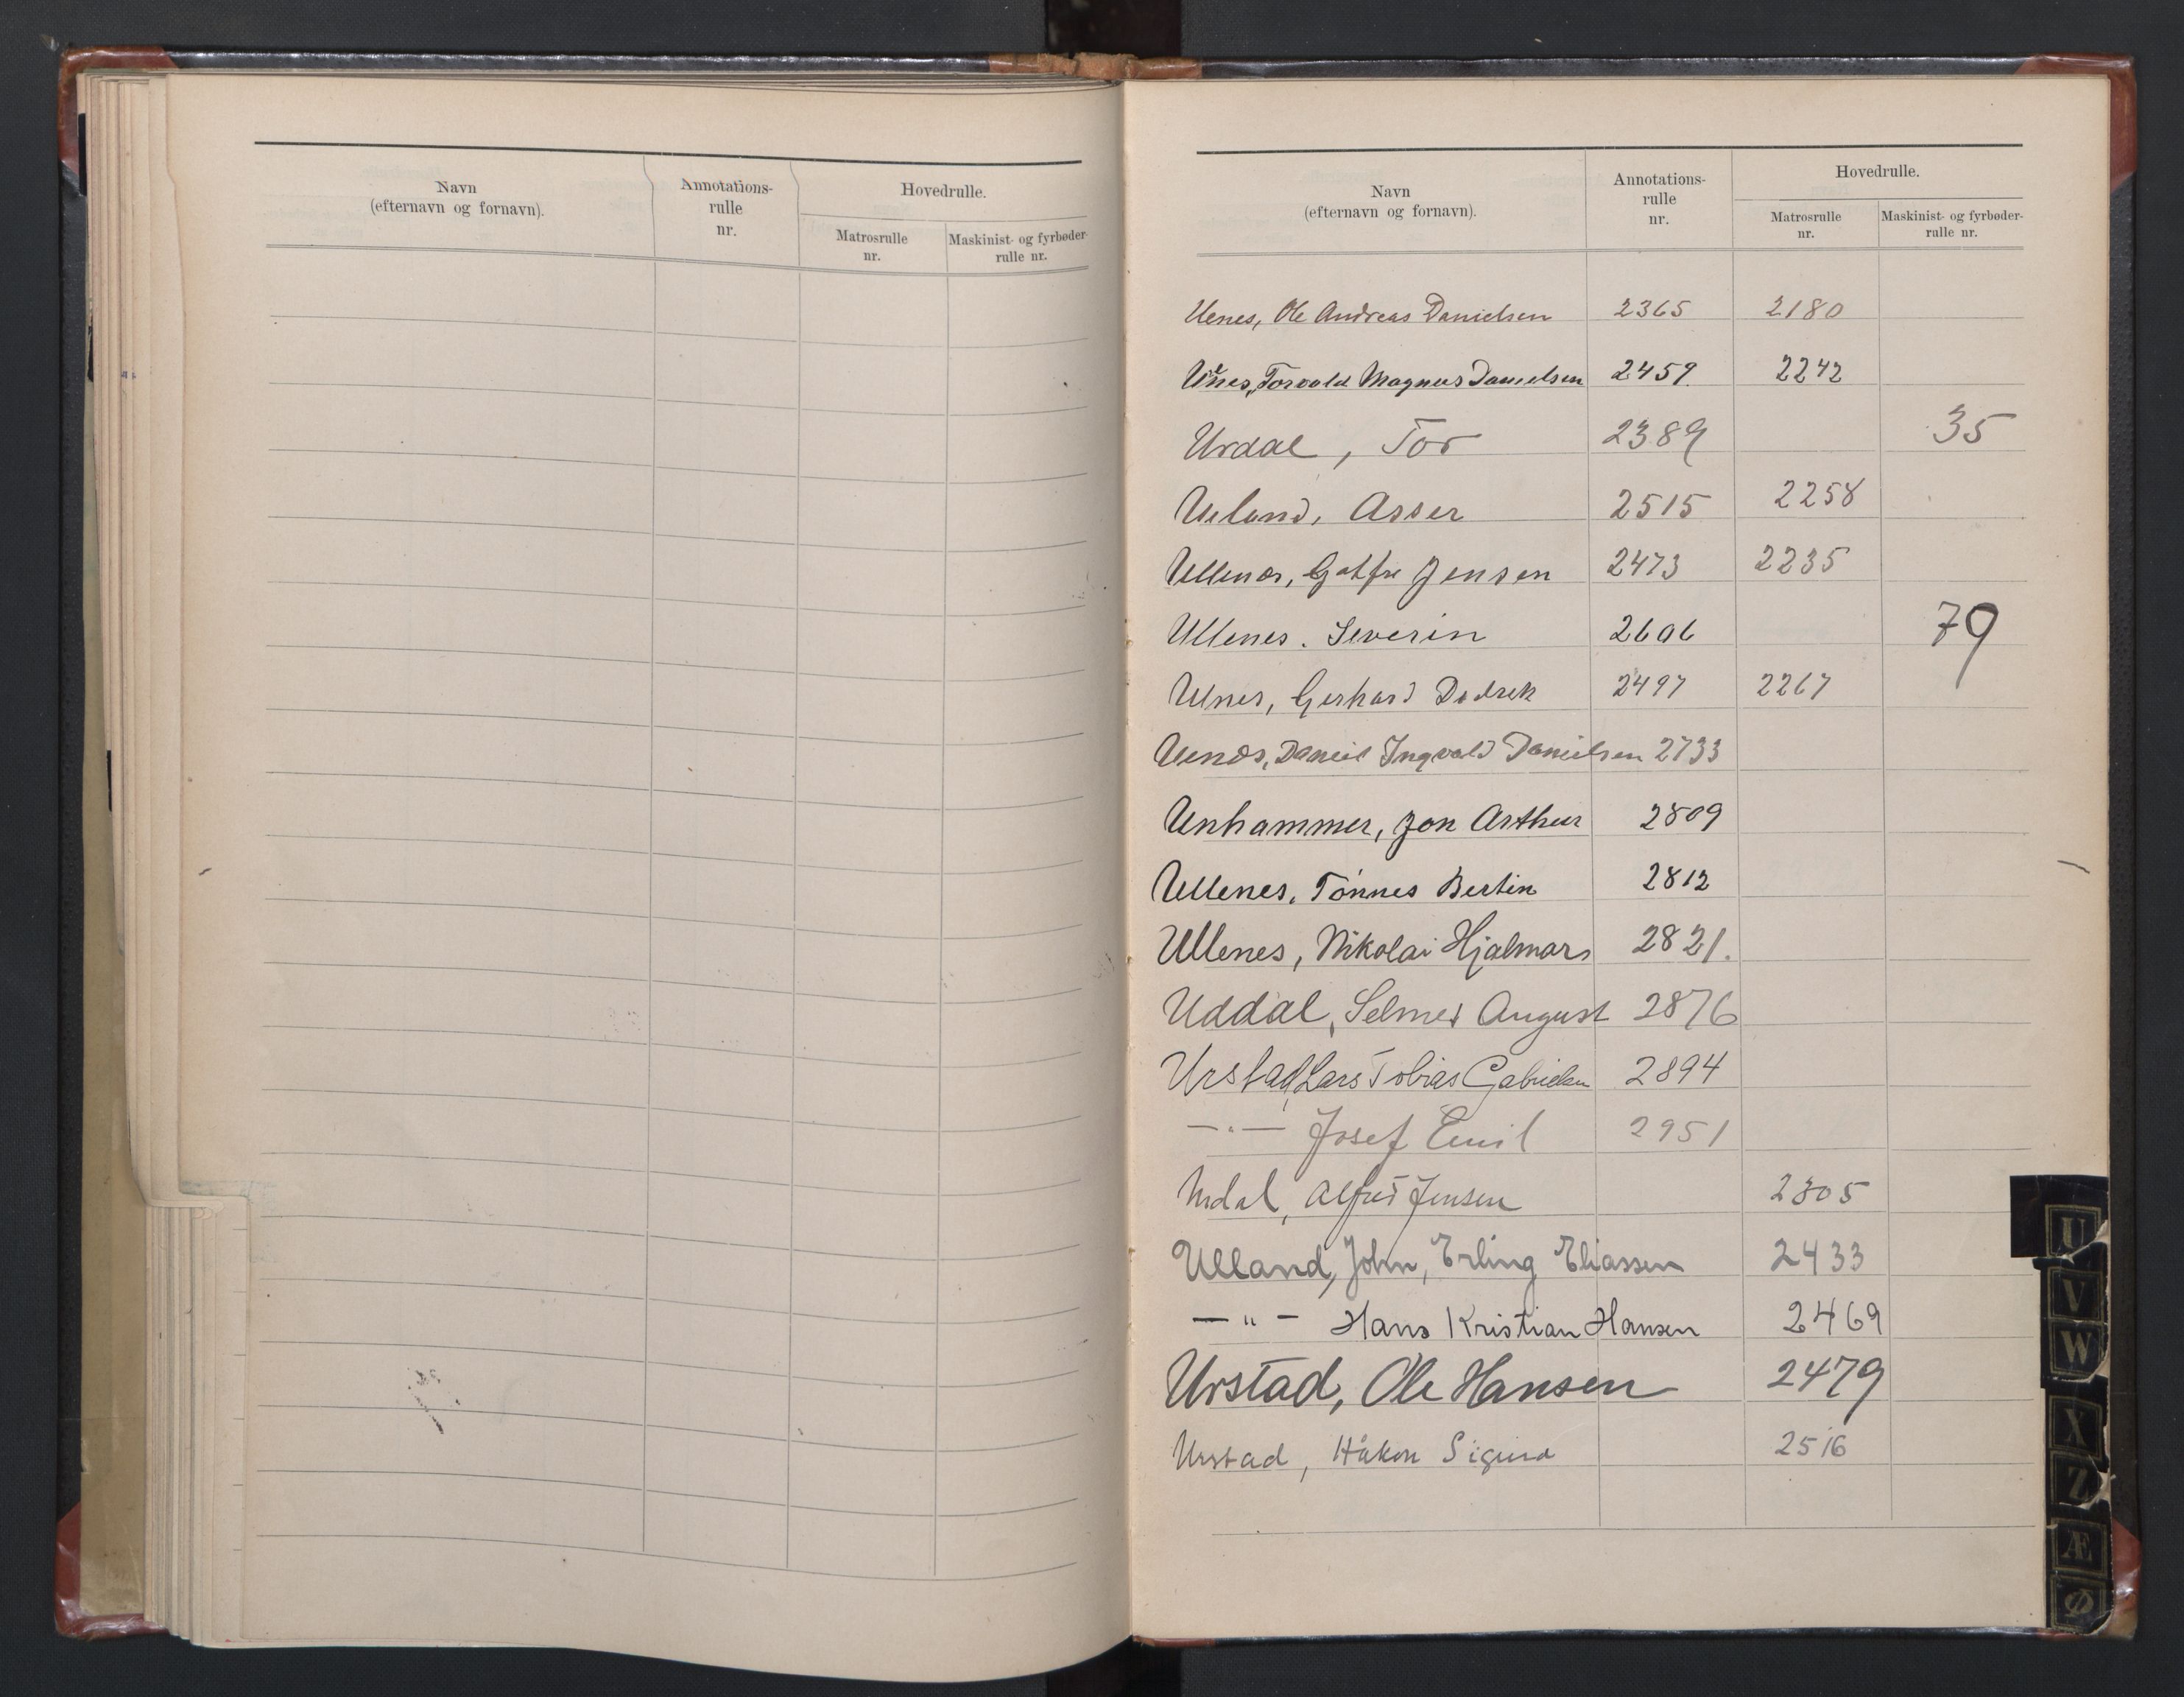 Navn
(efternavn og fornavn).
Annotations-
rulle
nr.
Hovedrulle.
Matrosrulle
nr.
Maskinist- og fyrbøder-
rulle nr.
Navn
(efternavn og fornavn).
Annotations-
rulle
nr.
Hovedrulle.
Matrosrulle
nr.
Maskinist- og fyrbøder-
rulle nr.
Uenes, Ole Andreas Danielsen 2365 2180
Torvald Magnus Danielsen 2459 2242
Urdal, Tor 2389 35
Ueland, Asser 2515 2258
Jensen 2473 2235
Ullenes. Severin 2606 79
Gerhard Didrek 2497 2267
Uenes, Daniel Ingvald Danielsen 2733
Unhammer, Jon Arthur 2809
Ullenes, Tønnes Bertin 2812
Ullenes, Nikolai Hjalmar 2821.
Uddal, Selmer August 2876
Urstad, Lars Tobias Gabrielsen 2894
—"— Josef Emil 2951
Alfred Jensen 2305
Ulland, John, Erling Eliassen 2433
— " — Hans Kristian Hansen 2469
Urstad, Ole Hansen 2479
Urstad, Håkon Sigurd 2516
U
V
W
X
Z
Æ
Ø